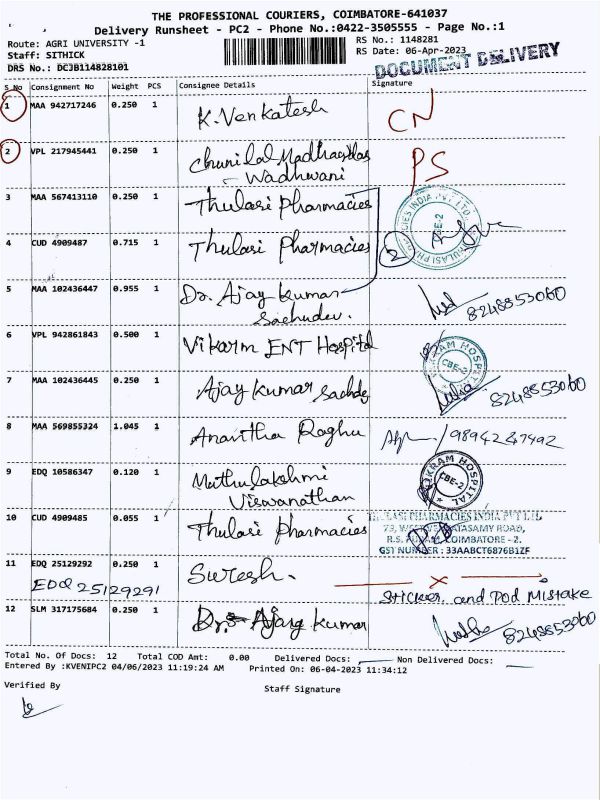 THE PROFESSIONAL COURIERS, COIMBATORE-641037
Delivery Runsheet - PC2 - Phone No.:0422-3505555 - Page No.:1
Route: AGRI UNIVERSITY -1
RS No.: 1148281
Staff: SITHICK
RS Date: 06-Apr-2023
DRS No.: DCJB114828101
DOCUMENT DELIVERY
S No Consignment No Weight PCS Consignee Details Signature
1 MAA 942717246 0.250 1 K. Venkatesh CN
2 VPL 217945441 0.250 1 Chunilal Madhavdas PS
Wadhwani
3 MAA 567413110 0.250 1 Thulasi Pharmacies
4 CUD 4909487 0.715 1 Thulasi Pharmacies 2
5 MAA 102436447 0.955 1 Dr. Ajay Kumar
Sachudev. 8248853060
6 VPL 942861843 0.500 1 Vikarm ENT Hospital
VIKRAM HOSPITAL CBE-2
7 MAA 102436445 0.250 1 Ajay Kumar Sachdev 8248853060
8 MAA 569855324 1.045 1 Anantha Raghu /9894247492
9 EDQ 10586347 0.120 1 Muthulakshmi
Viswanathan
VIKRAM HOSPITAL CBE-2
10 CUD 4909485 0.055 1 Thulasi Pharmacies
THULASI PHARMACIES INDIA PVT LTD
73, ROAD,
R.S. COIMBATORE - 2.
GST NUMBER : 33AABCT6876B1ZF
11 EDQ 25129292 0.250 1 Suresh. x
EDQ 25129291
Sticker and Pod Mistake
12 SLM 317175684 0.250 1 Dr. Ajay Kumar 8248853060
Total No. Of Docs: 12 Total COD Amt: 0.00 Delivered Docs: Non Delivered Docs:
Entered By :KVENIPC2 04/06/2023 11:19:24 AM Printed On: 06-04-2023 11:34:12
Verified By
Staff Signature